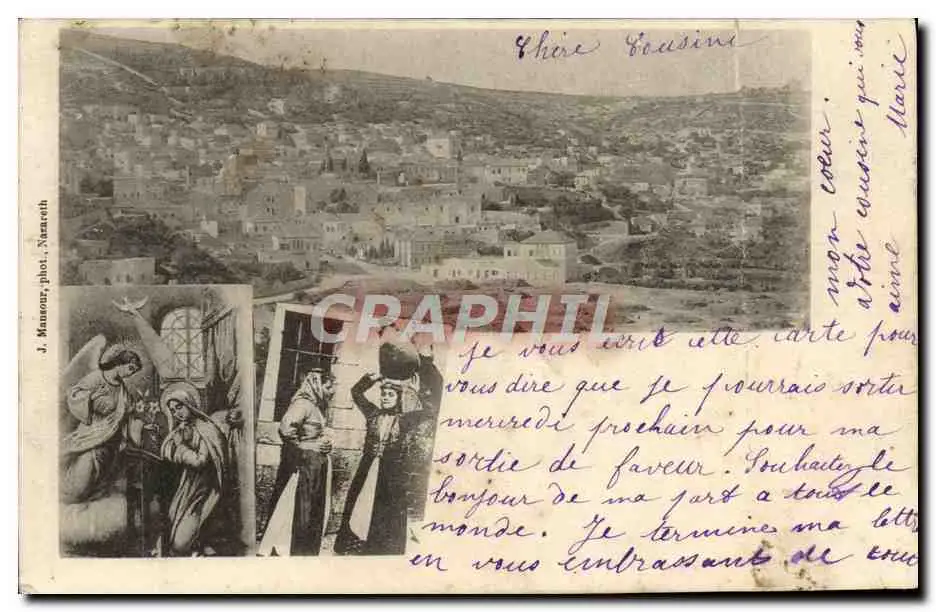 Chère Cousine
Je vous écris cette carte pour
vous dire que je pourrais sortir
mercredi prochain pour ma
sortie de faveur. Souhaitez le
bonjour de ma part a tous le
monde. Je termine ma lettre
en vous embrassant de tout
mon coeur.
Votre cousine qui vous
aime Marie
J. Mansour, phot., Nazareth
CRAPHIL